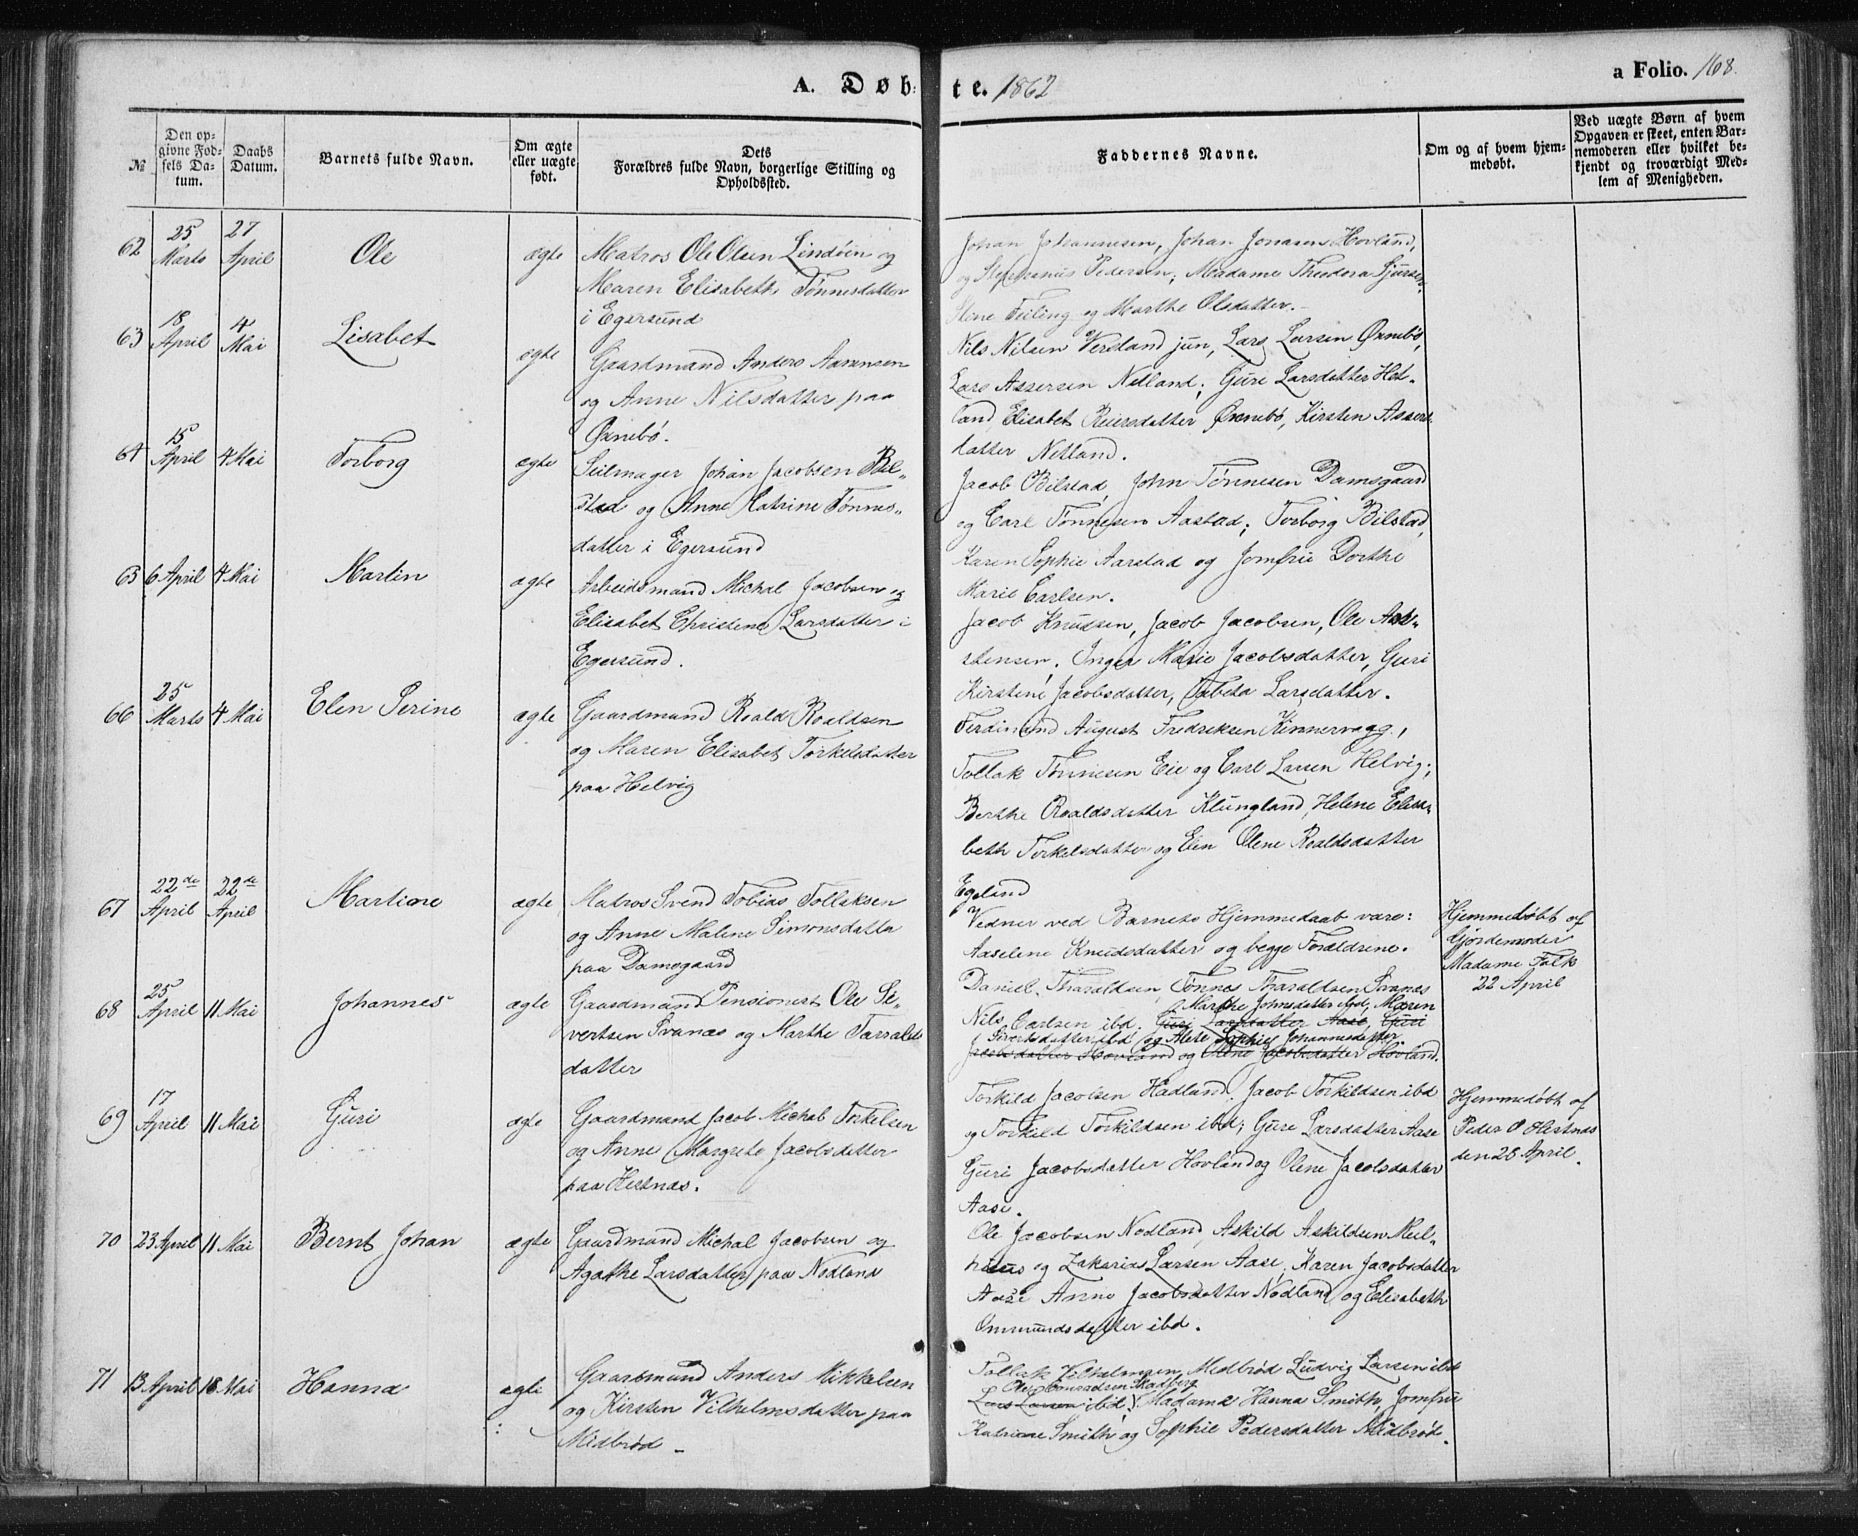 A. Døbte. 1862
a Folio. 168.
No
Den opgivne Fødsels Datum.
Daabs Datum.
Barnets fulde Navn.
Om ægte eller uægte født.
Dets Forældres fulde Navn, borgerlige Stilling og Opholdssted.
Faddernes Navne.
Om og af hvem hjemmedøbt.
Ved uægte Børn af hvem Opgaven er skeet, enten Barnemoderen eller hvilket bekjendt og troværdigt Medlem af Menigheden.
62 25 Marts 27 April Ole ægte
Matros Ole Olsen Lindøen og
Maren Elisabeth Tønnesdatter
i Egersund
Johan Johannesen, Johan Jonasen Hovland,
og Stephanus Pedersen; Madame Theodora
Feiling og Marthe Olsdatter.
63 18 April 4 Mai Lisabet ægte
Gaardmand Anders Aanensen
og Anne Nilsdatter paa
Ørnebø.
Nils Nilsen Versland jun, Lars Larsen Ørnebø,
Lars Assersen Netland; Guri Larsdatter Het-
land, Elisabet Reiersdatter Ørnebø, Kirsten Assers-
datter Netland.
64 15 April 4 Mai Torborg ægte
Seilmager Johan Jacobsen Bil-
stad og Anne Katrine Tønnes-
datter i Egersund
Jacob Bilstad, John Tønnesen Damsgaard
og Carl Tønnesen Aastad; Torborg Bilstad,
Karen Sophie Aarstad og Jomfru Dorthe
Marie Carlsen.
65 6 April 4 Mai Martin ægte
Arbeidsmand Michal Jacobsen og
Elisabet Christene Larsdatter i
Egersund.
Jacob Knudsen, Jacob Jacobsen, Ole
stensen; Inger Marie Jacobsdatter, Guri
Kirstene Jacobsdatter, Tabeta Larsdatter.
66 25 Marts 4 Mai Elen Serine ægte
Gaardmand Roald Roaldsen
og Maren Elisabet Torkelsdatter
paa Helvig
Ferdinand August Fredriksen Kinnervagg,
Tollak Tønnesen Eie og Carl Larsen Helvig;
Berthe Roaldsdatter Klungland, Helene Elisa-
beth Torkelsdatter og Elen Olene Roaldsdatter
Egeland
67 22de April 22de April Martine ægte
Matros Svend Tobias Tollaksen
og Anne Malene Simonsdatter
paa Damsgaard
Vidner ved Barnets Hjemmedaab vare:
Aaselene Knudsdatter og begge Forældrene.
Hjemmedøbt af
Gjordemoder
Madame Falk
22 April
68 25 April 11 Mai Johannes ægte
Gaardmand Pensionert Ole Si-
vertsen Svanæs og Marthe Tarralds-
datter
Daniel Tharaldsen, Tønnes Tharaldsen Svanæs
Marthe Johnsdatter ibd, Maren
Nils Carlsen ibd. Guri Larsdatter Aase, Guri
Sivertsdatter ibd og Alete Sophie Johannesdatter.
Jacobsdatter Hovland og Olene Jacobsdatter Hovland.
69 17 April 11 Mai Guri ægte
Gaardmand Jacob Michal Torkelsen
og Anne Margrete Jacobsdatter
paa Hestnæs.
Torkild Jacobsen Hadland, Jacob Torkildsen ibd
og Torkild Torkildsen ibd; Guri Larsdatter Aase
Guri Jacobsdatter Hovland og Olene Jacobsdatter
Aase.
Hjemmedøbt af
Peder O Hestnæs
den 28 April.
70 23 April 11 Mai Bernt Johan ægte
Gaardmand Michal Jacobsen og
Agathe Larsdatter paa Nodland
Ole Jacobsen Nodland, Askild Askildsen Meil-
huus og Zakarias Larsen Aase; Karen Jacobsdatter
Aase Anne Jacobsdatter Nodland og Elisabeth
Ommundsdatter ibd.
71 13 April 18 Mai Hanna ægte
Gaardmand Anders Mikkelsen
og Kirsten Vilhelmsdatter paa
Midbrød
Tollak Vilhelmsen Midbrød Ludvig Larsen ibd
Ole Conradsen Skadberg
Lars Larsen ibd; Madame Hanna Smith, Jomfru
Katrine Smith og Sophie Pedersdatter Midbrød.